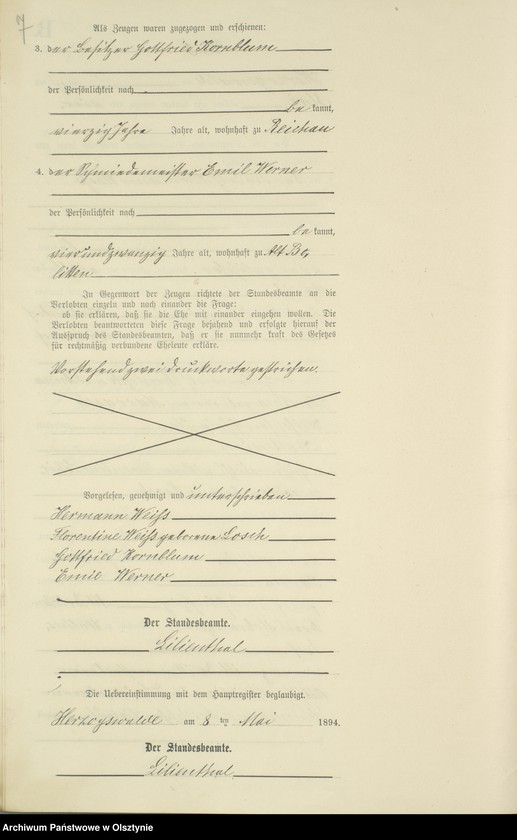 7
Als Zeugen waren zugezogen und erschienen:
3. der Besitzer Gottfried Kornblum
der Persönlichkeit nach
be kannt,
vierzig Jahre Jahre alt, wohnhaft zu Reichau
4. der Schmiedemeister Emil Werner
der Persönlichkeit nach
be kannt,
vierundzwanzig Jahre alt, wohnhaft zu Alt Bo,
litten
In Gegenwart der Zeugen richtete der Standesbeamte an die
Verlobten einzeln und nach einander die Frage:
ob sie erklären, daß sie die Ehe mit einander eingehen wollen. Die
Verlobten beantworteten diese Frage bejahend und erfolgte hierauf der
Ausspruch des Standesbeamten, daß er sie nunmehr kraft des Gesetzes
für rechtmäßig verbundene Eheleute erkläre.
Vorstehend zwei Druckworte gestrichen.
Vorgelesen, genehmigt und unterschrieben
Hermann Weiß
Florentine Weiß geborene Losch
Gottfried Kornblum
Emil Werner
Der Standesbeamte.
Lilienthal
Die Uebereinstimmung mit dem Hauptregister beglaubigt.
Herzogswalde am 8 ten Mai 1894.
Der Standesbeamte.
Lilienthal
Archiwum Państwowe w Olsztynie